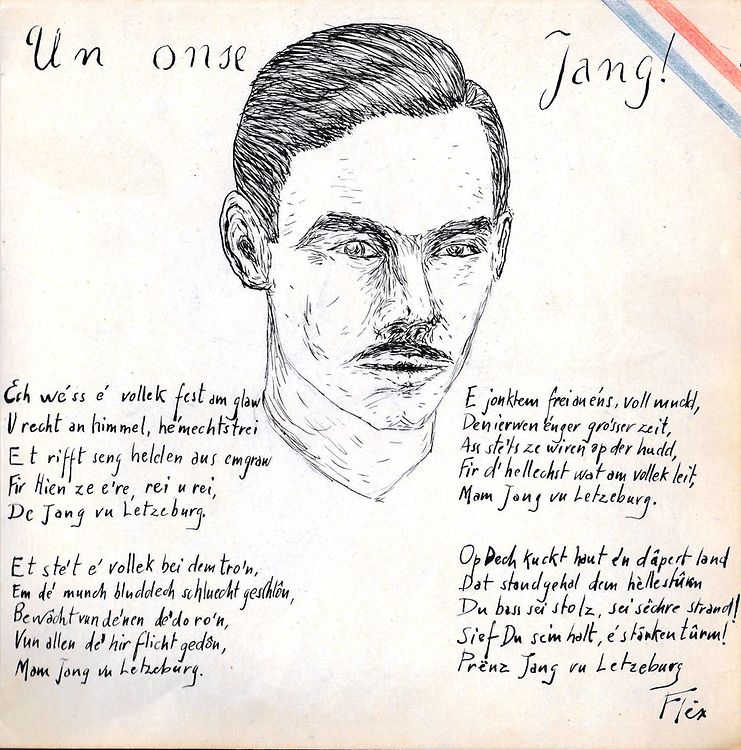 Un onse Jang!
Ech wéss é vollek fest am glaw
U recht an himmel, hémechtstrei
Et rifft seng helden aus emgraw
Fir Hien ze e're, rei u rei,
De Jang vu Letzeburg.
Et sté't é vollek bei dem tro'n,
Em dé munch bluddech schluecht geschlôn,
Bewâcht vun dénen dé do ro'n,
Vun allen dé hir flicht gedôn,
Mam Jang vu Letzeburg.
E jonktem freianéns, voll mudd,
Den ierwen énger grósser zeit,
Ass sté'ts ze wiren op der hudd,
Fir d'hellechst wat am vollek leit,
Mam Jang vu Letzeburg.
Op Dech kuckt haut én dâpert land
Dat stand gehal dem hèllestûrm
Du bass séi stolz, séi séchre strand!
Sief Du seim halt, é stärken tûrm!
Prënz Jang vu Letzeburg